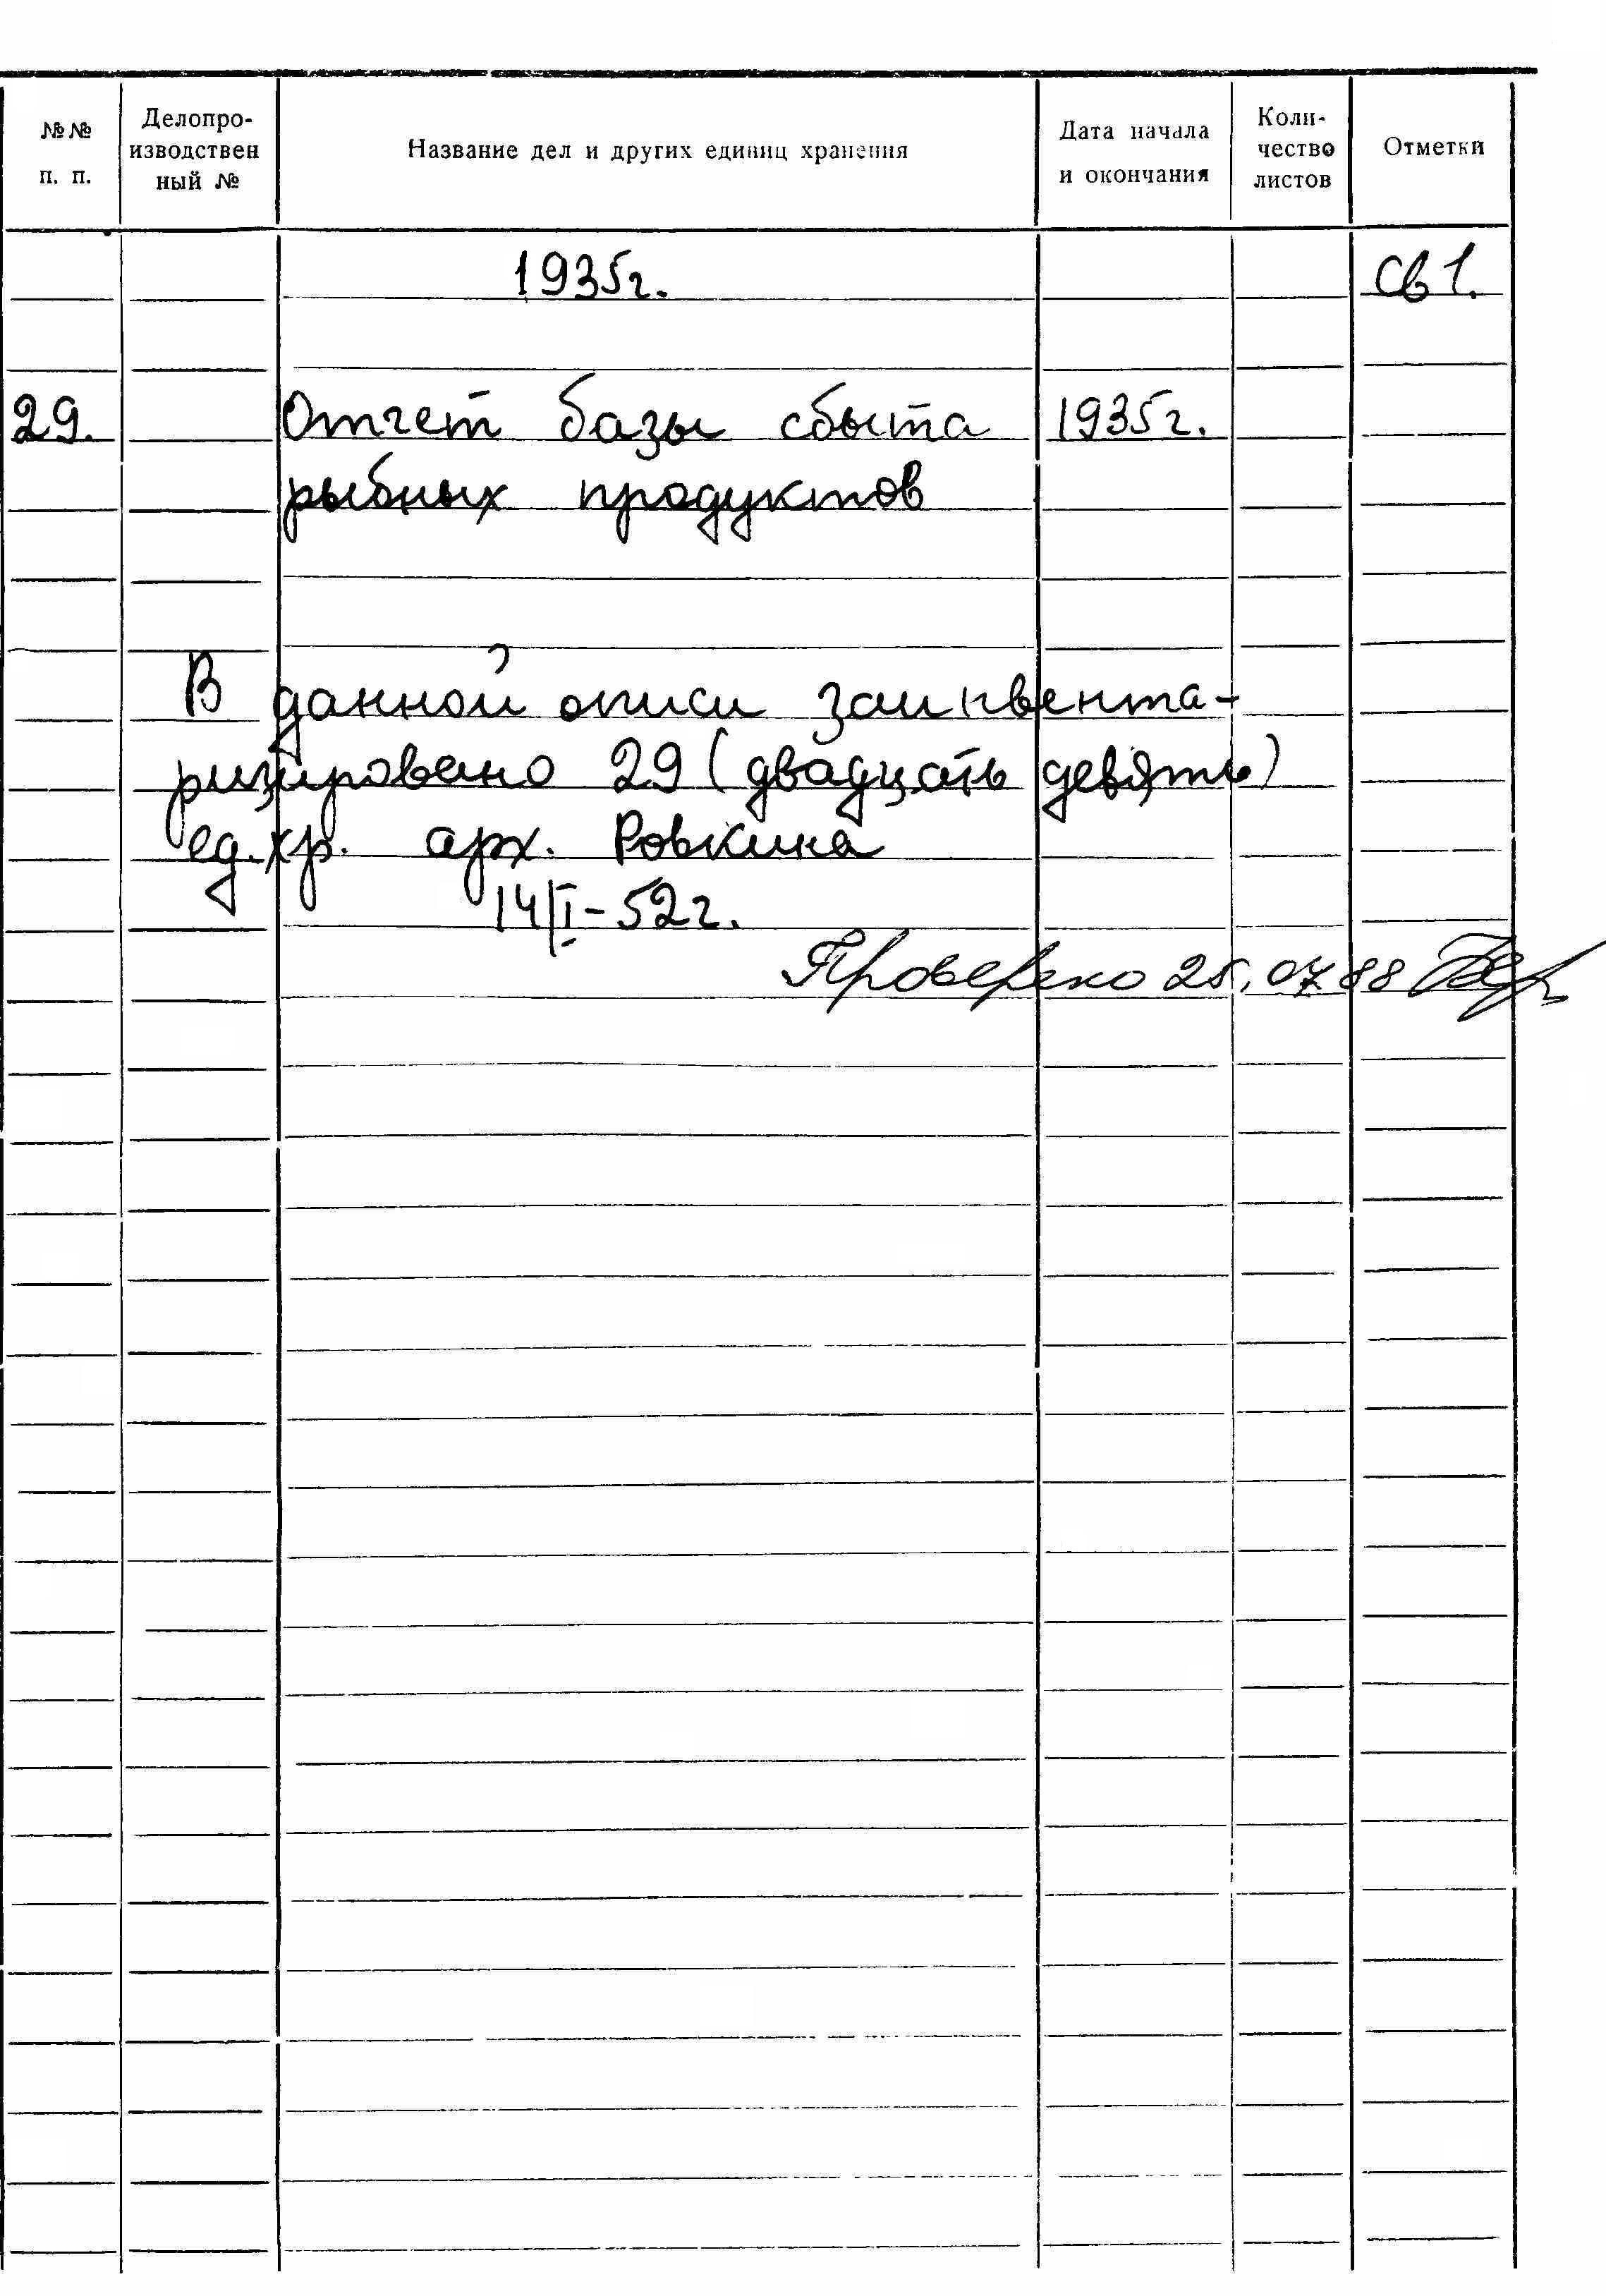 №№ п. п. Делопроизводствен ный № Название дел и других единиц хранения Дата начала и окончания Коли- чество листов Отметки
1935г. Св 1.
29. Отчет базы сбыта 1935г.
рыбных продуктов
В данной описи заинвента-
ризировано 29 (двадцать девять)
ед. хр. арх. Ровкина
14/I-52г.
Проверено 25.07.88